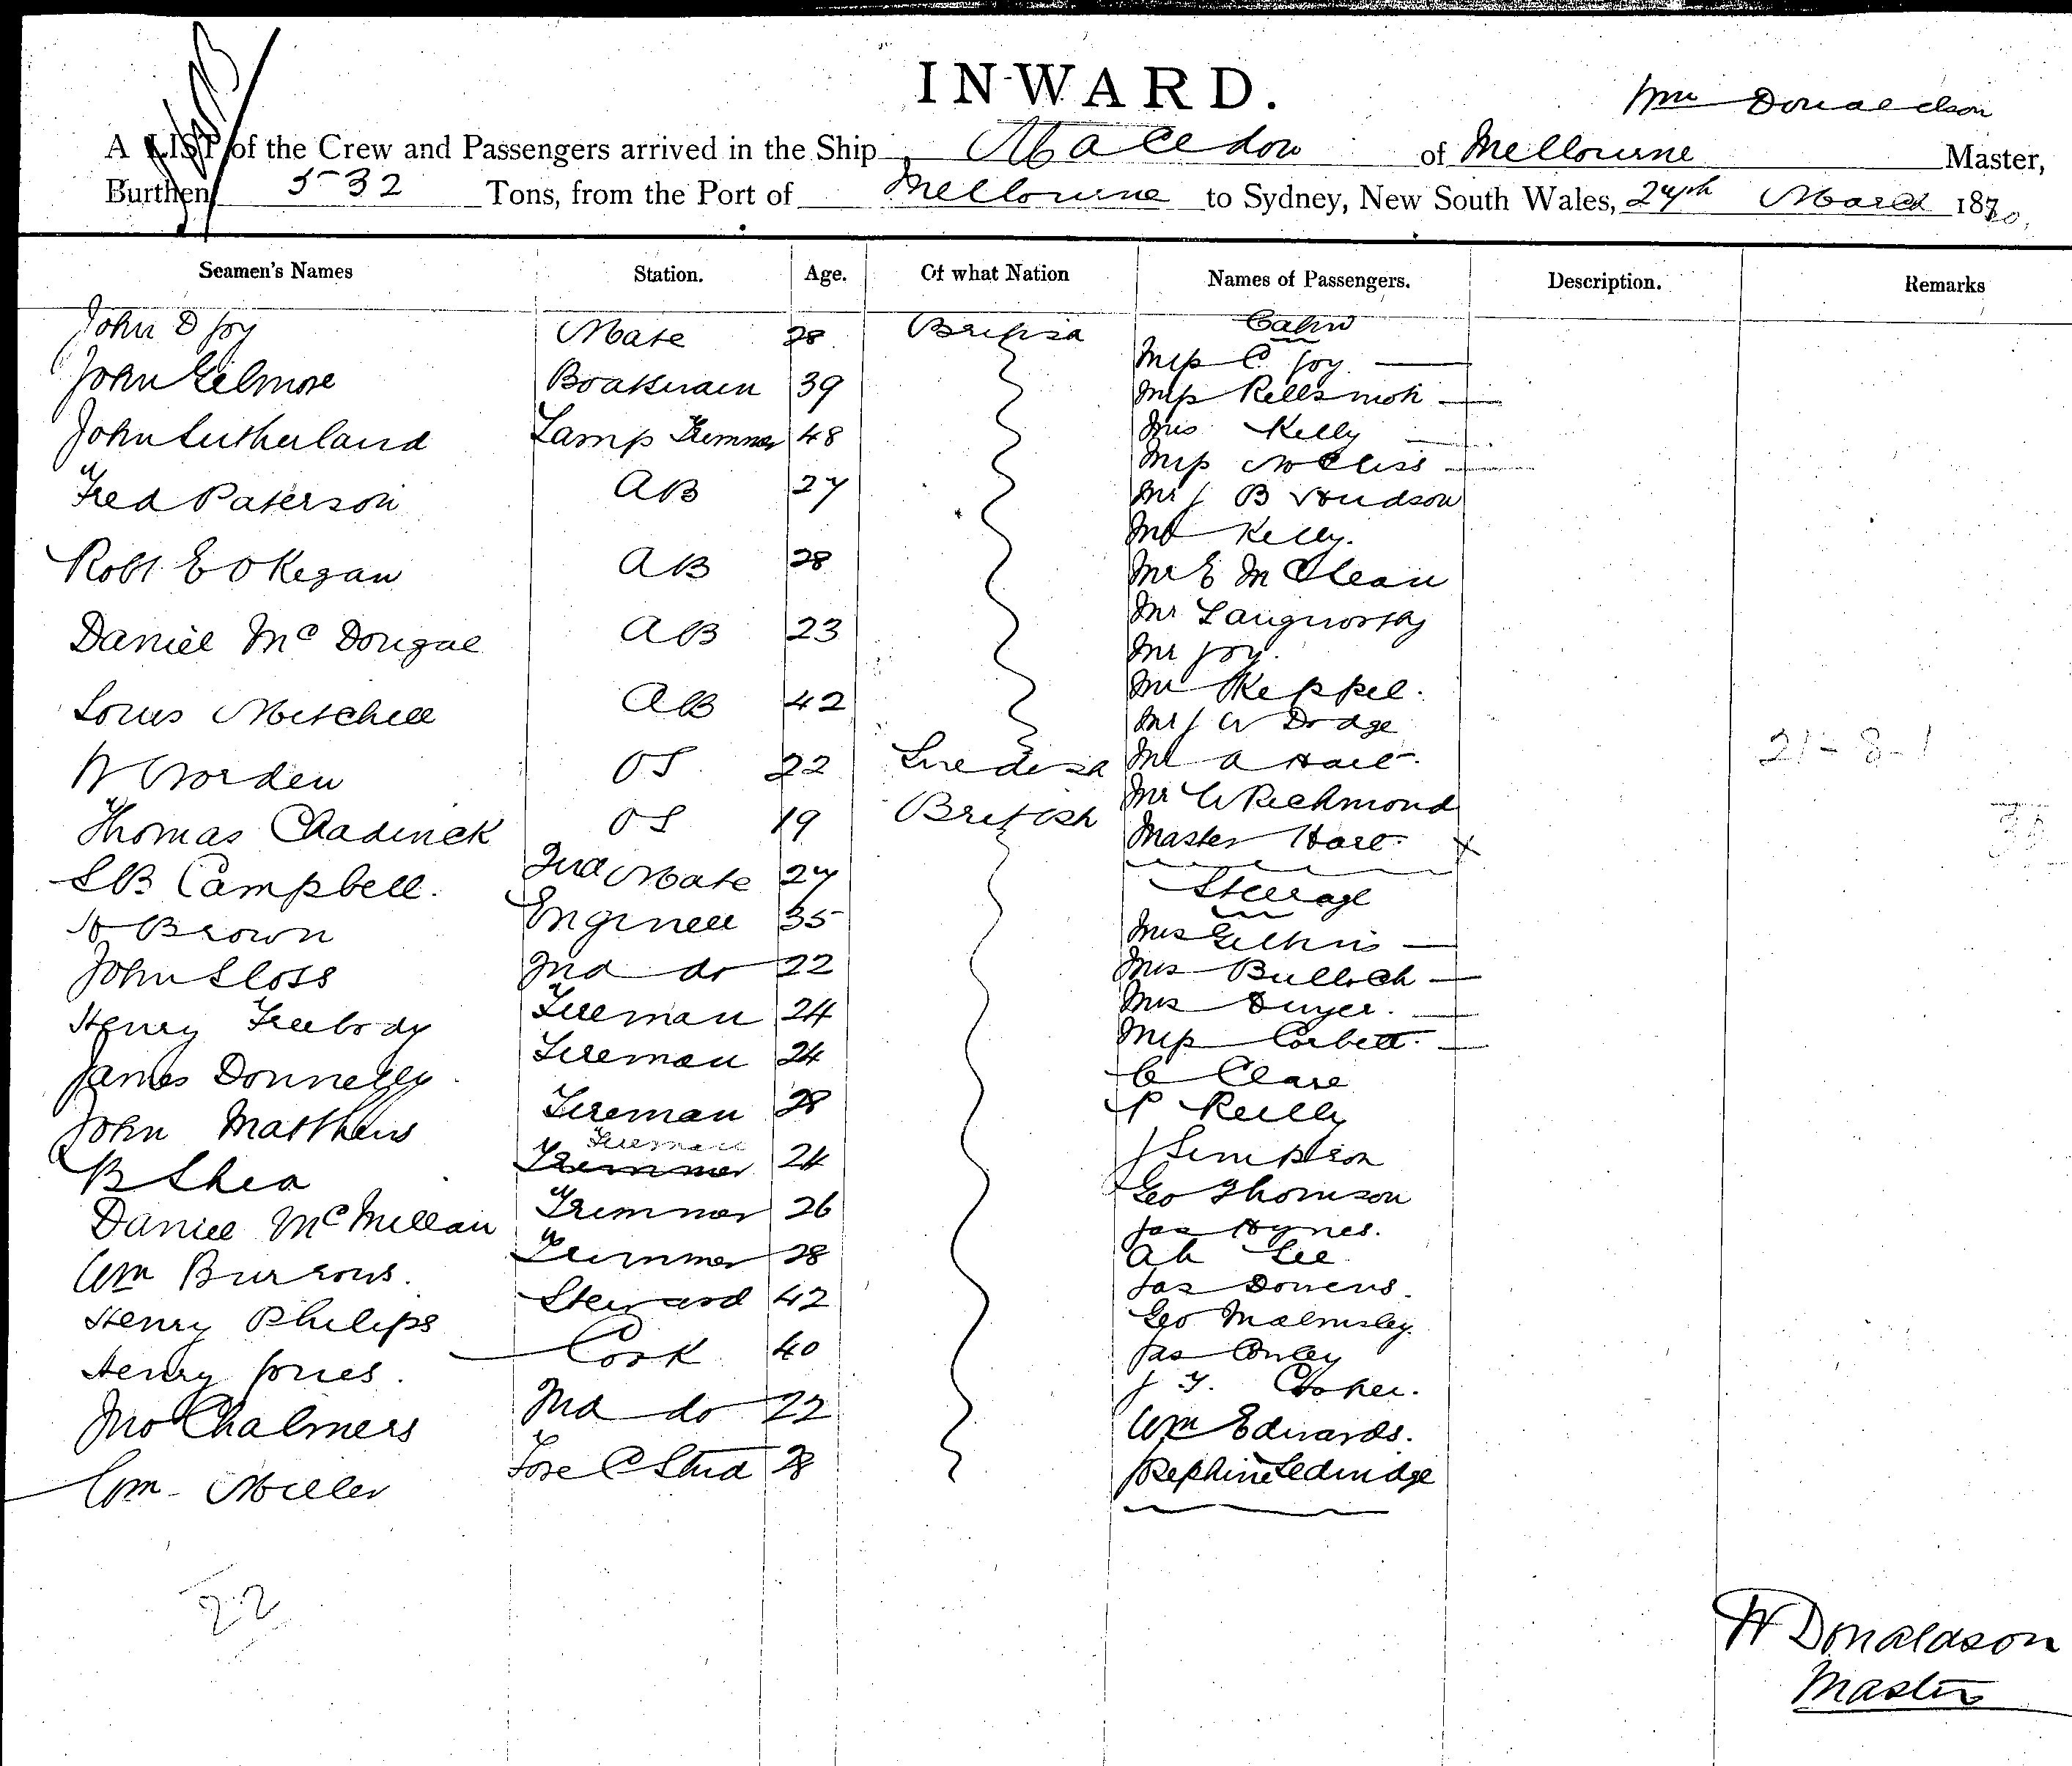 INWARD.
Wm Donaldson
A LIST of the Crew and Passengers arrived in the Ship Macedon of Melbourne Master,
Burthen 532 Tons, from the Port of Melbourne to Sydney, New South Wales, 24th March 1870
Seamen's Names Station. Age. Of what Nation Names of Passengers. Description. Remarks
John D Joy Mate 28 British
John Gilmore Boatswain 39
John Sutherland Lamp Trimmer 48
Fred Paterson AB 27
Robt E O Kegan AB 28
Daniel Mc Dougal AB 23
Louis Mitchell AB 42
W Worden OS 22 Swedish
Thomas Chadwick OS 19 British
S B Campbell. 2nd Mate 27
H Brown Engineer 35
John Sloss 2nd do 22
Henry Freebody Fireman 24
James Donnelly Fireman 24
John Matthews Fireman 28
B Shea Fireman Trimmer 24
Daniel McMillan Trimmer 26
Wm Bursons. Trimmer 28
Henry Philips Steward 42
Henry Jones. Cook 40
Jno Chalmers 2nd do 22
Wm Miller Fore C Stwd 28
22
Cabin
Miss C Joy
Miss
Mrs Kelly
Miss
Mr J B Hudson
Mr Kelly.
Mr E McLean
Mr Langworthy
Mr Joy.
Mr Keppel.
Mr J W Dodge
Mr A Hart
Mr W Richmond
Master Hart. x
Steerage
Mrs
Mrs Bulloch
Mrs Dwyer.
Miss Corbett.
C Clare
P Reilly
J Simpson
Geo Thomson
Jas Hynes.
Ah Lee
Jas Downs.
Geo Malmsley.
Jas Conley
J T.
Wm Edwards.
Josephine Seldridge
21-8-1
W Donaldson
Master